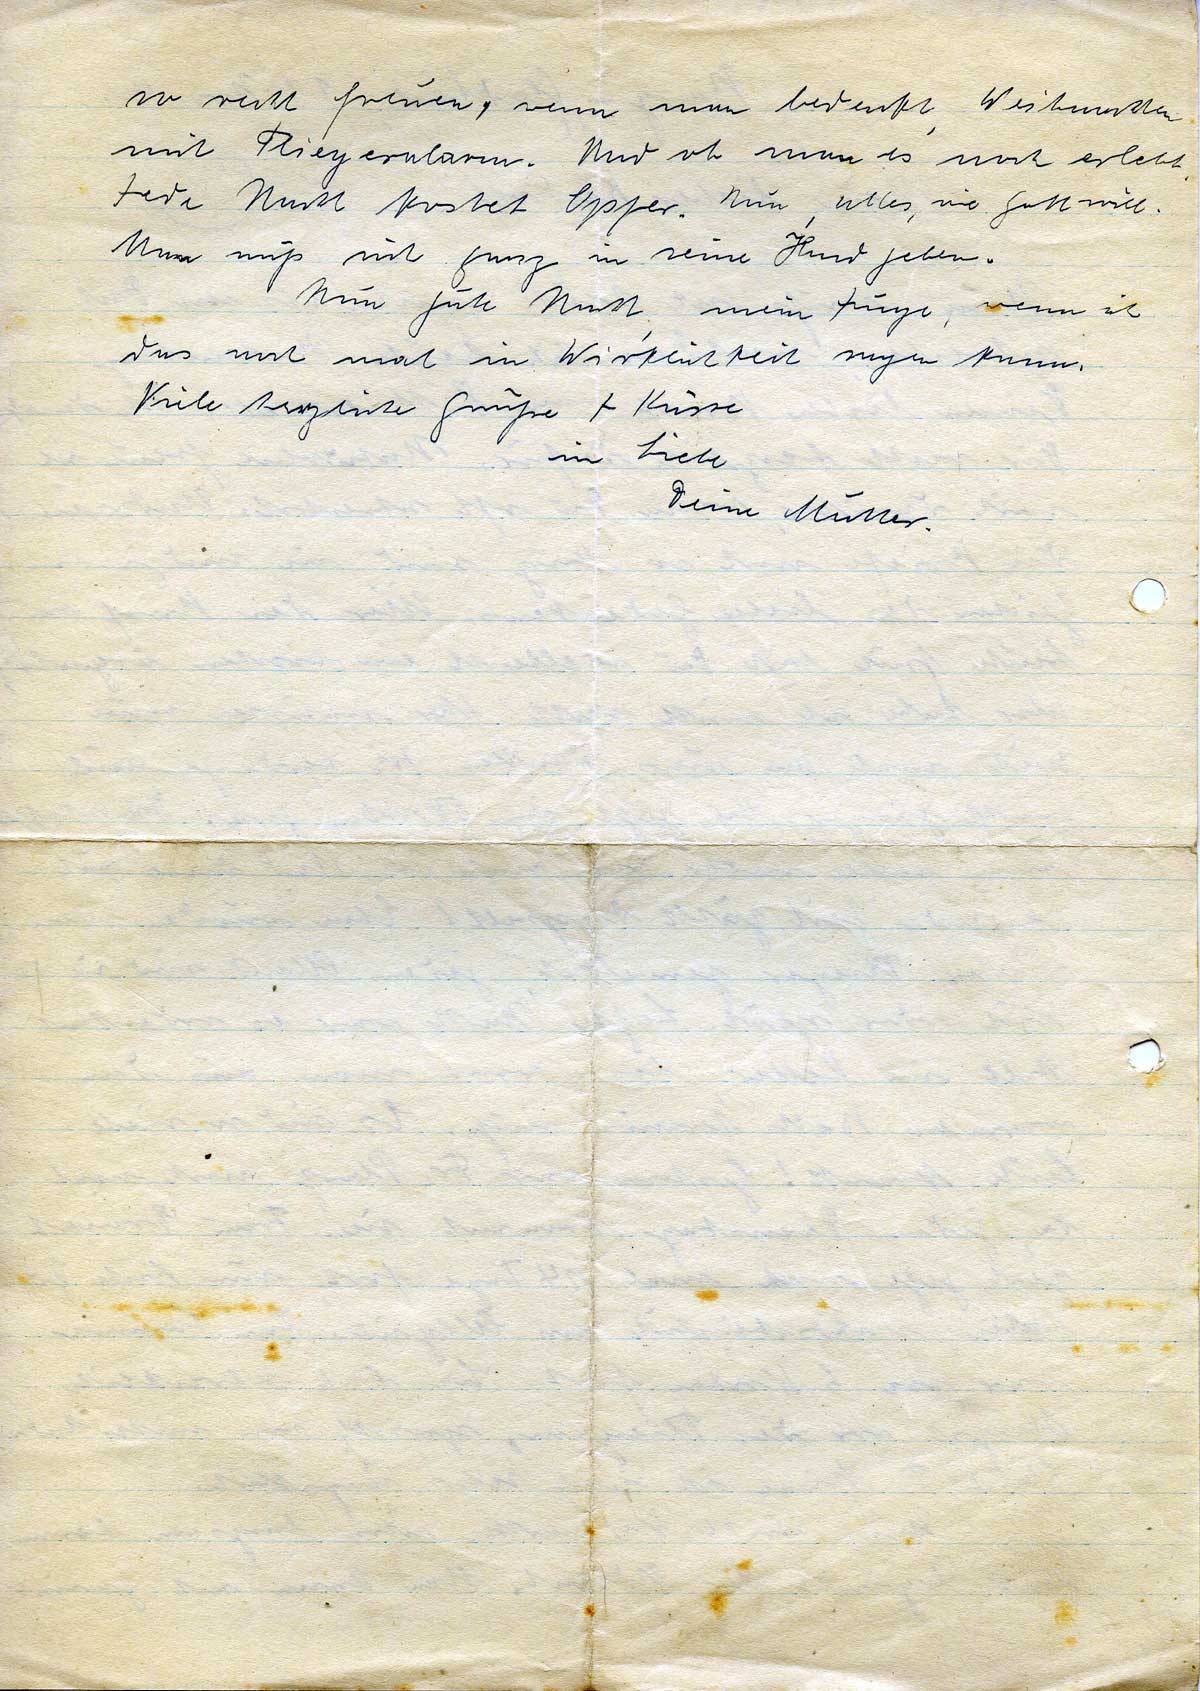 so recht freuen, wenn man bedenkt, Weihnachten
mit Fliegeralarm. Und ob man es noch erlebt.
Jede Nacht kostet Opfer. Nun, alles, wie Gott will.
Man muß sich ganz in seine Hand geben.
Nun gute Nacht, mein Junge, wenn ich
das noch mal in Wirklichkeit sagen kann.
Viele herzliche Grüße + Küsse
in Liebe
Deine Mutter.